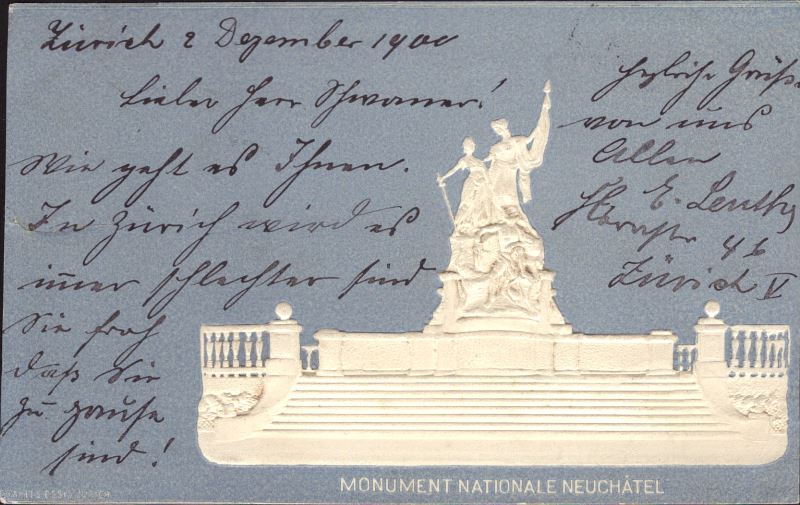 Zürich 2 Dezember 1900
Lieber Herr Schwaner!
Wie geht es Ihnen.
In Zürich wird es
immer schlechter sind
Sie froh
daß Sie
zu Hause
sind!
herzliche Grüße
von uns
Allen
E.
46
Zürich V
MONUMENT NATIONALE NEUCHÂTEL